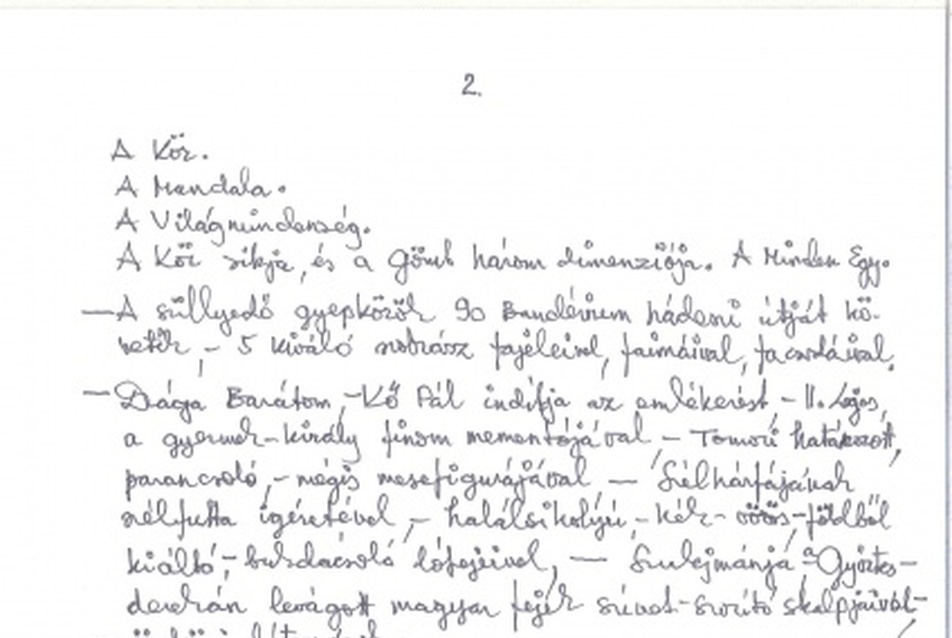 2.
A Kör.
A Mandala.
A Világmindenség.
A Kör síkja, és a Gömb három dimenziója. A Minden Egy.
— A süllyedő gyepkörök 90 Bandérium hádeszi útját kö-
vetik, – 5 kiváló szobrász fajeleivel, faimáival, facsodáival.
— Drága Barátom, – Kő Pál indítja az emlékezést, – II. Lajos,
a gyermek-király finom mementójával – Tomori határozott,
parancsoló, – mégis mesefigurájával — Szélhárfájának
szélfutta ígéretével, – halálsikolyú – kék – vörös – földből
kiáltó, – bukdácsoló lófejeivel, — Szulejmánjá – a Győztes –
derekán levágott magyar fejek szívet-szorító skalpjaival –